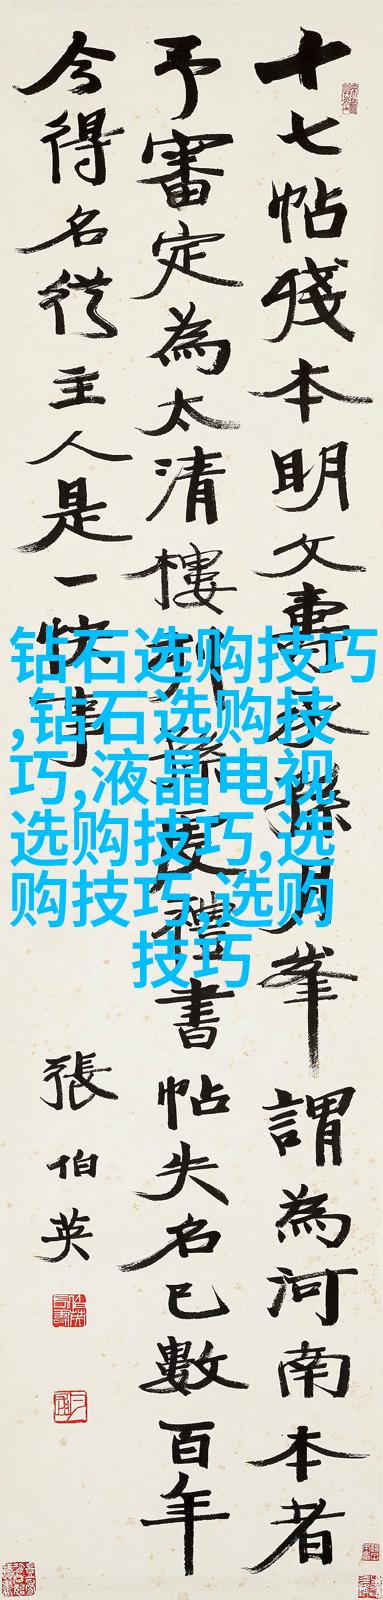 十七帖殘本明文壽承孫月峯謂為河南本者
予審定為太清樓書帖失名已數百年
今得名從主人是一快事
張伯英
钻石选购技巧
,钻石选购技
巧,液晶电视
选购技巧,选
购技巧,选购
技巧